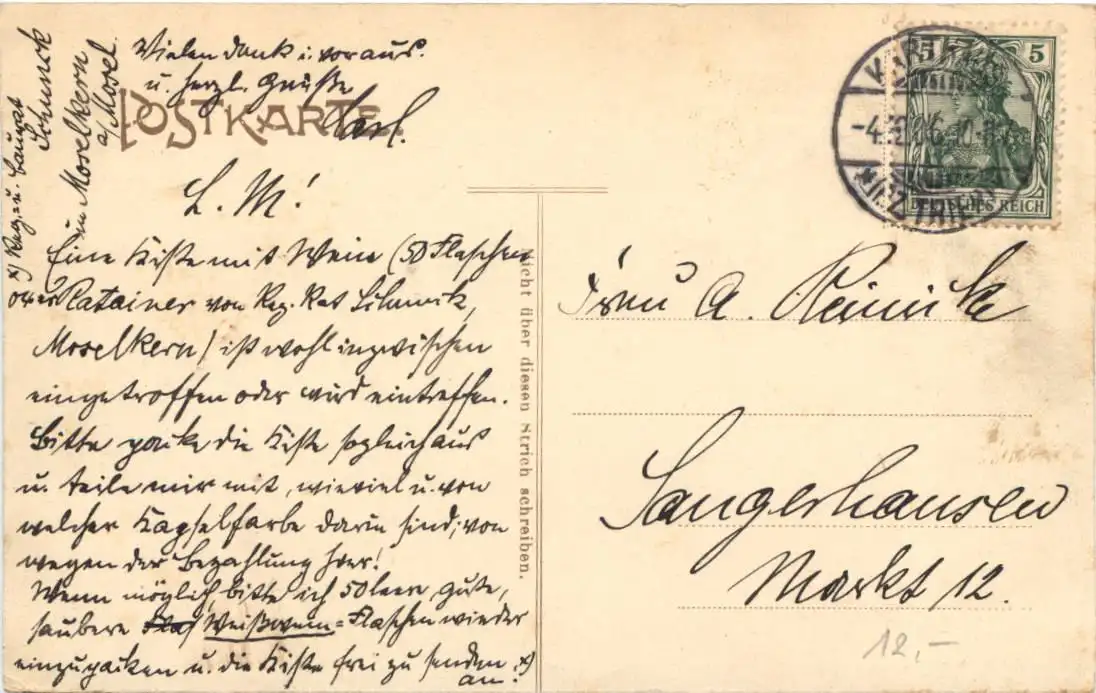 Vielen Dank i. voraus.
u. herzl. Grüße
Carl.
POSTKARTE.
L. M!
Eine Kiste mit Wein (50 Flaschen
von Reg. Rat Schunck,
Moselkern) ist wohl inzwischen
eingetroffen oder wird eintreffen.
Bitte packe die Kiste sogleich aus
u. teile mir mit, wieviel u. von
welcher Kapselfarbe darin sind; von
wegen der Bezahlung hier!
Wenn möglich, bitte ich 50 leere, gute,
saubere Weißwein-Flaschen wieder
einzupacken u. die Kiste frei zu senden x)
an:
x) Reg. u. Baurat
Schunck
in Moselkern
a/Mosel.
Nicht über diesen Strich schreiben.
5 5
DEUTSCHES REICH
-4.12.06.
Frau A. Reinicke
Sangerhausen
Markt 12.
12,-